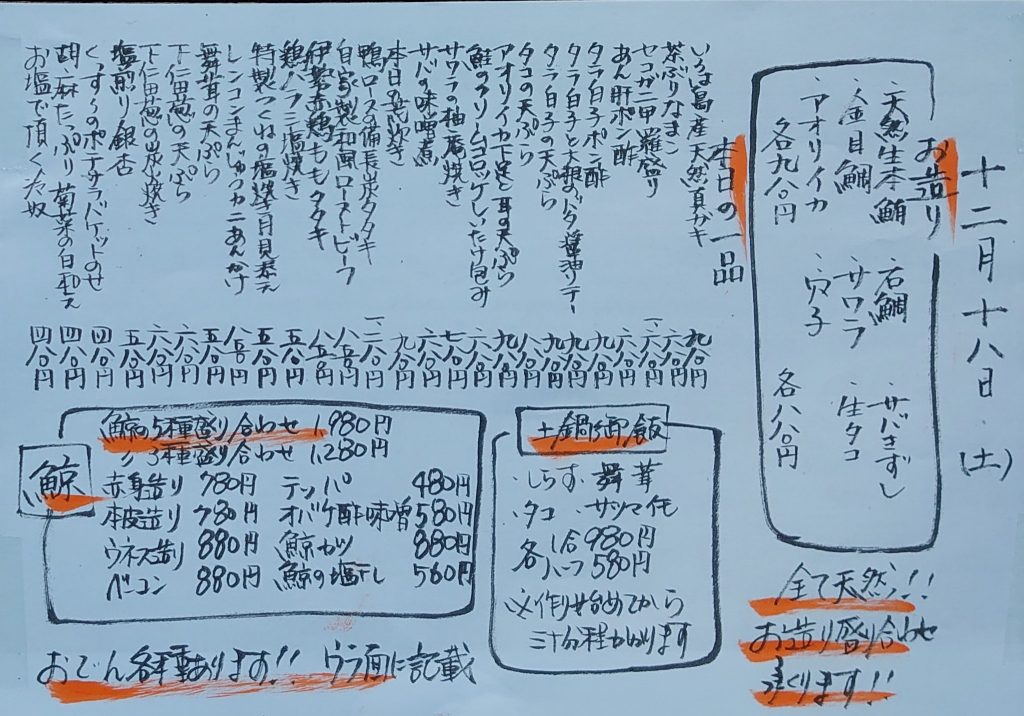 十二月十八日(土)
お造り
・天然生本鮪
・金目鯛
・アオリイカ
各九八〇円
・石鯛
・サワラ
・穴子
・サバきずし
・生タコ
各八八〇円
全て天然!!
お造り盛り合わせ
つくります!!
本日の一品
いろは島産天然真ガキ 九八〇円
茶ぶりなまこ 六八〇円
セコガニ甲羅盛り
あん肝ポン酢
タラ白子ポン酢
タラ白子と大根のバタ醤油ソテー
タラ白子の天ぷら
タコの天ぷら
アオリイカ下足と耳の天ぷら
鮭のクリームコロッケしいたけ包み
サワラの柚庵焼き
サバの味噌煮
本日の兜焚き
鴨ロースの備長炭タタキ
自家製和風ローストビーフ
伊勢赤鶏ももタタキ
鶏ハラミ塩焼き
特製つくねの塩焼き月見添え
レンコンまんじゅうカニあんかけ
舞茸の天ぷら
下仁田葱の天ぷら
下仁田葱の炭焼き
塩煎り銀杏 四八〇円
くんすーのポテサラバケットのせ
胡麻たっぷり菊菜の白和え 四八〇円
お塩で頂くため奴 四八〇円
土鍋御飯
・しらす ・舞茸
・タコ ・サツマイモ
各 1合980円
ハーフ580円
※作り始めてから
三十分程かかります
鯨
鯨の5種盛り合わせ 1,980円
〃 3種盛り合わせ 1,280円
赤身造り 780円 テッパ 480円
本皮造り 780円 オバケ酢味噌 580円
ウネス造り 880円 鯨カツ 880円
ベーコン 880円 鯨の塩干し 560円
おでん各種あります!! ウラ面に記載